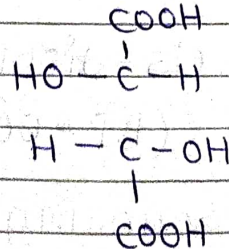 COOH
HO - C - H
H - C - OH
COOH